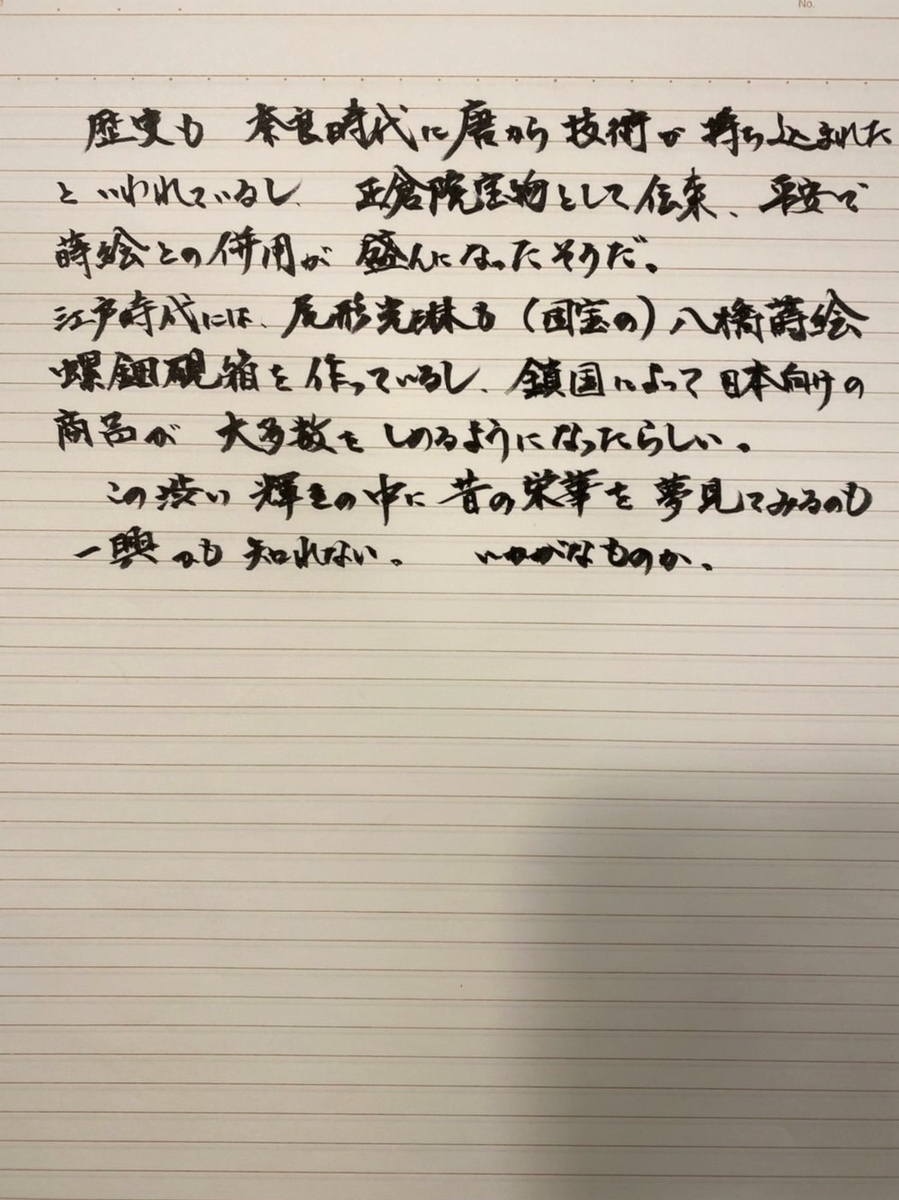 No.
歴史も 奈良時代に唐から技術が持ち込まれた
といわれているし、正倉院宝物として伝来、平安で
蒔絵との併用が盛んになったそうだ。
江戸時代には、尾形光琳も(国宝の)八橋蒔絵
螺鈿硯箱を作っているし、鎖国によって日本向けの
商品が 大多数をしめるようになったらしい。
この渋い輝きの中に昔の栄華を夢見てみるのも
一興かも知れない。 いかがなものか。